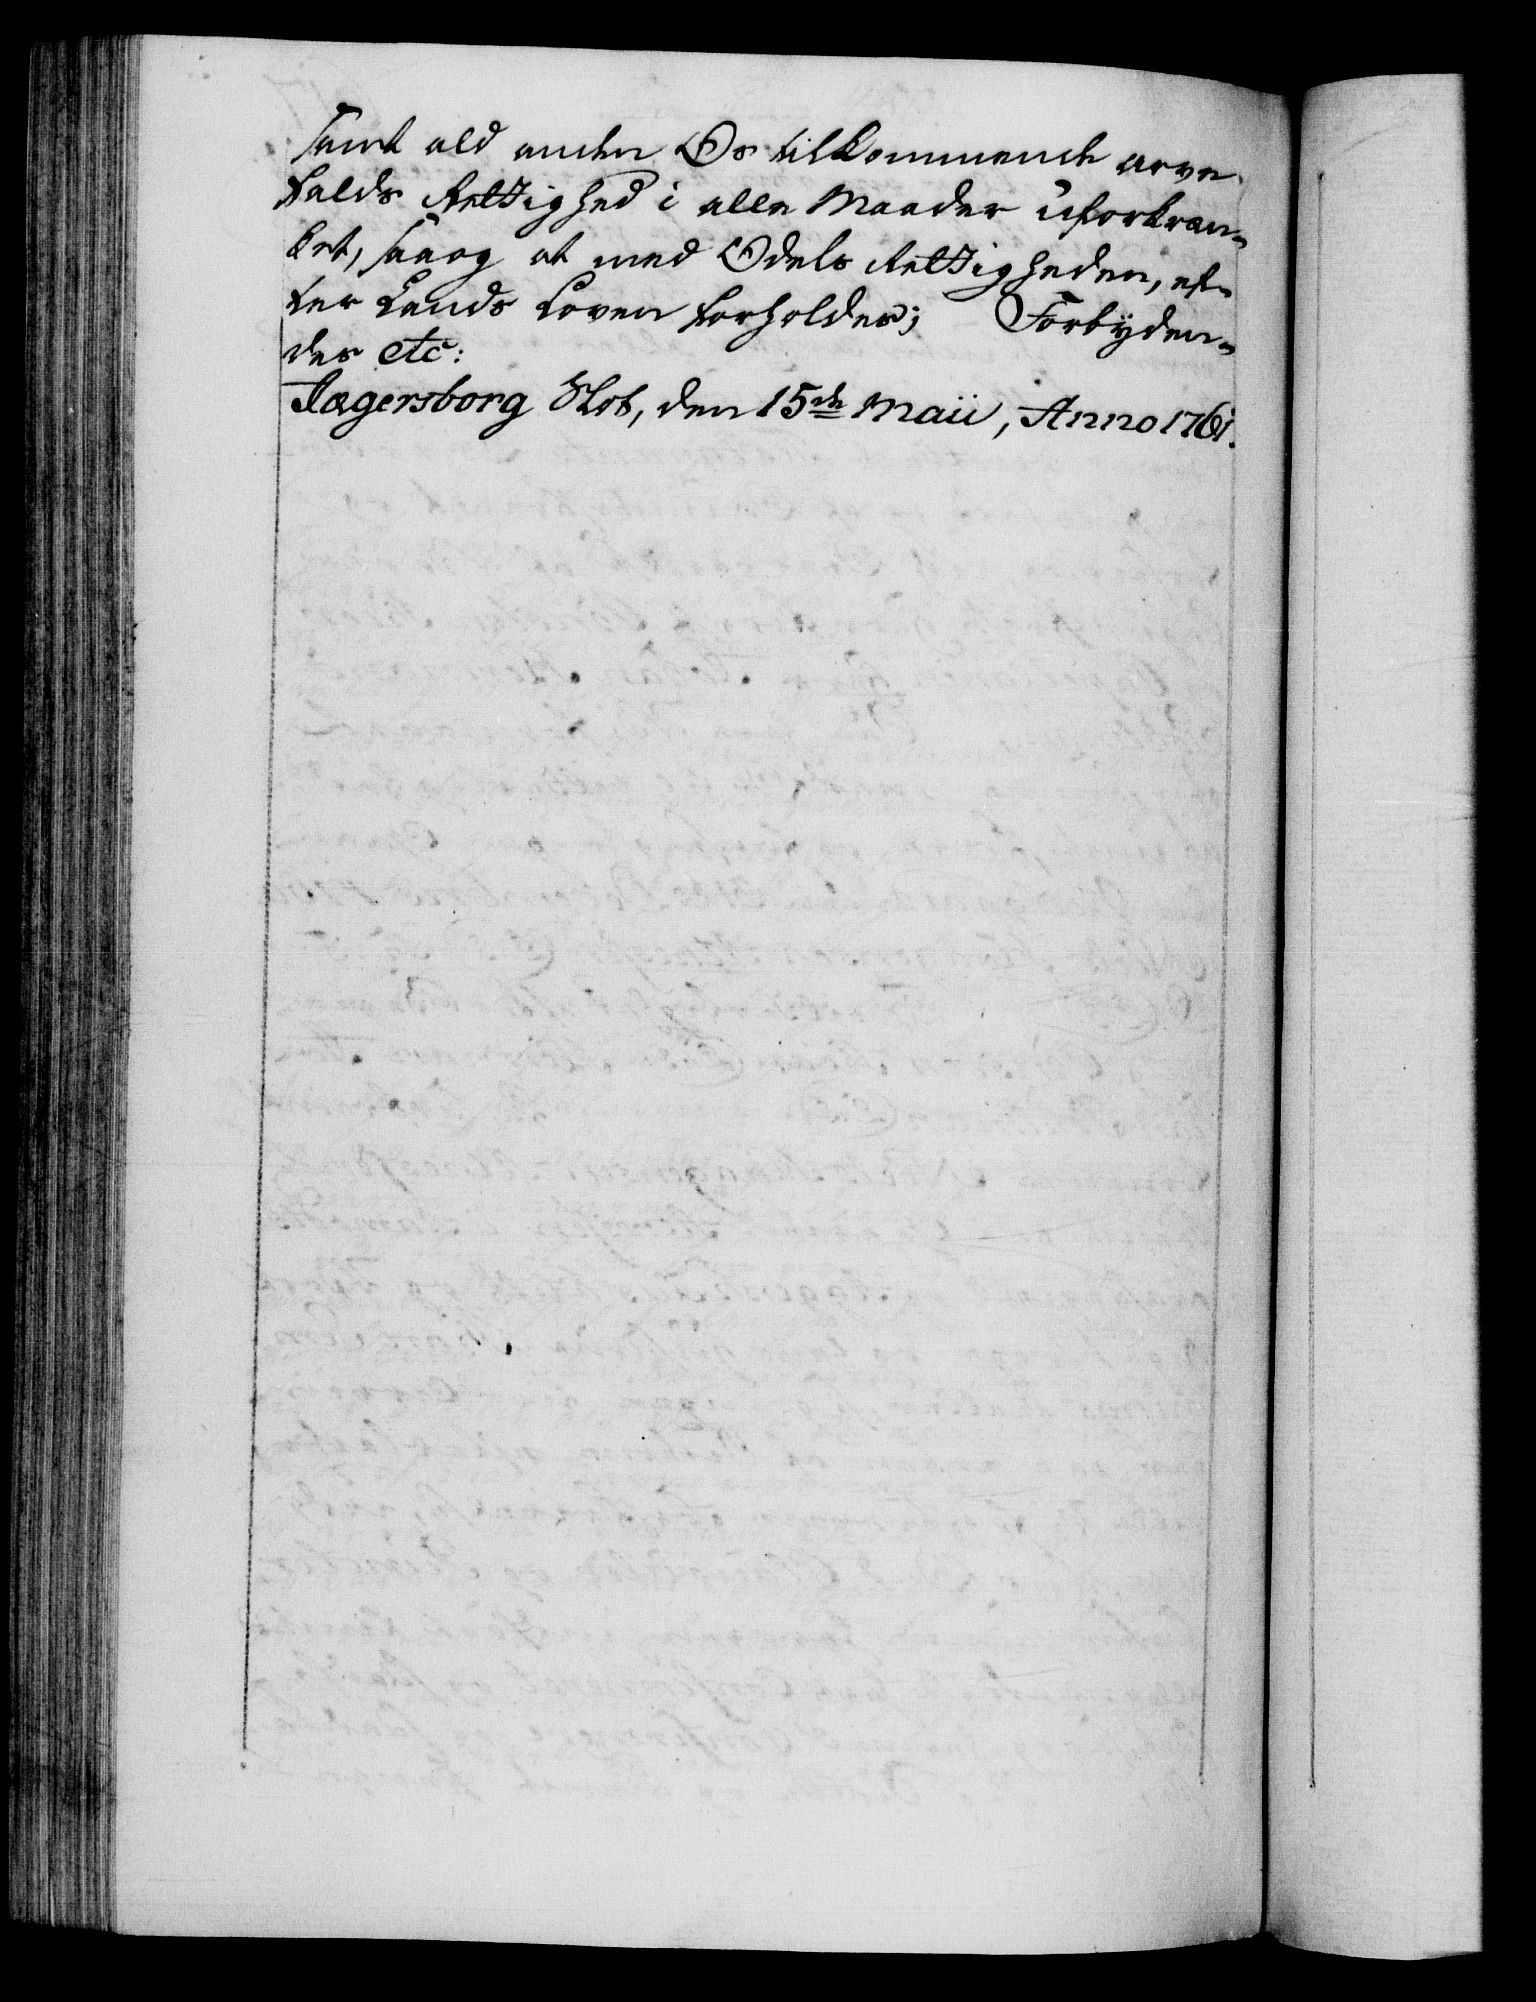 samt ald anden Os tilkommende arve
falds Rettighed i alle Maader uforkræn-
ket, saa og at med Odels Rettigheden, ef-
ter Lands Loven forholdes; Forbÿden-
des etc:
Jægersborg Slot, den 15de Maii, Anno 1761.